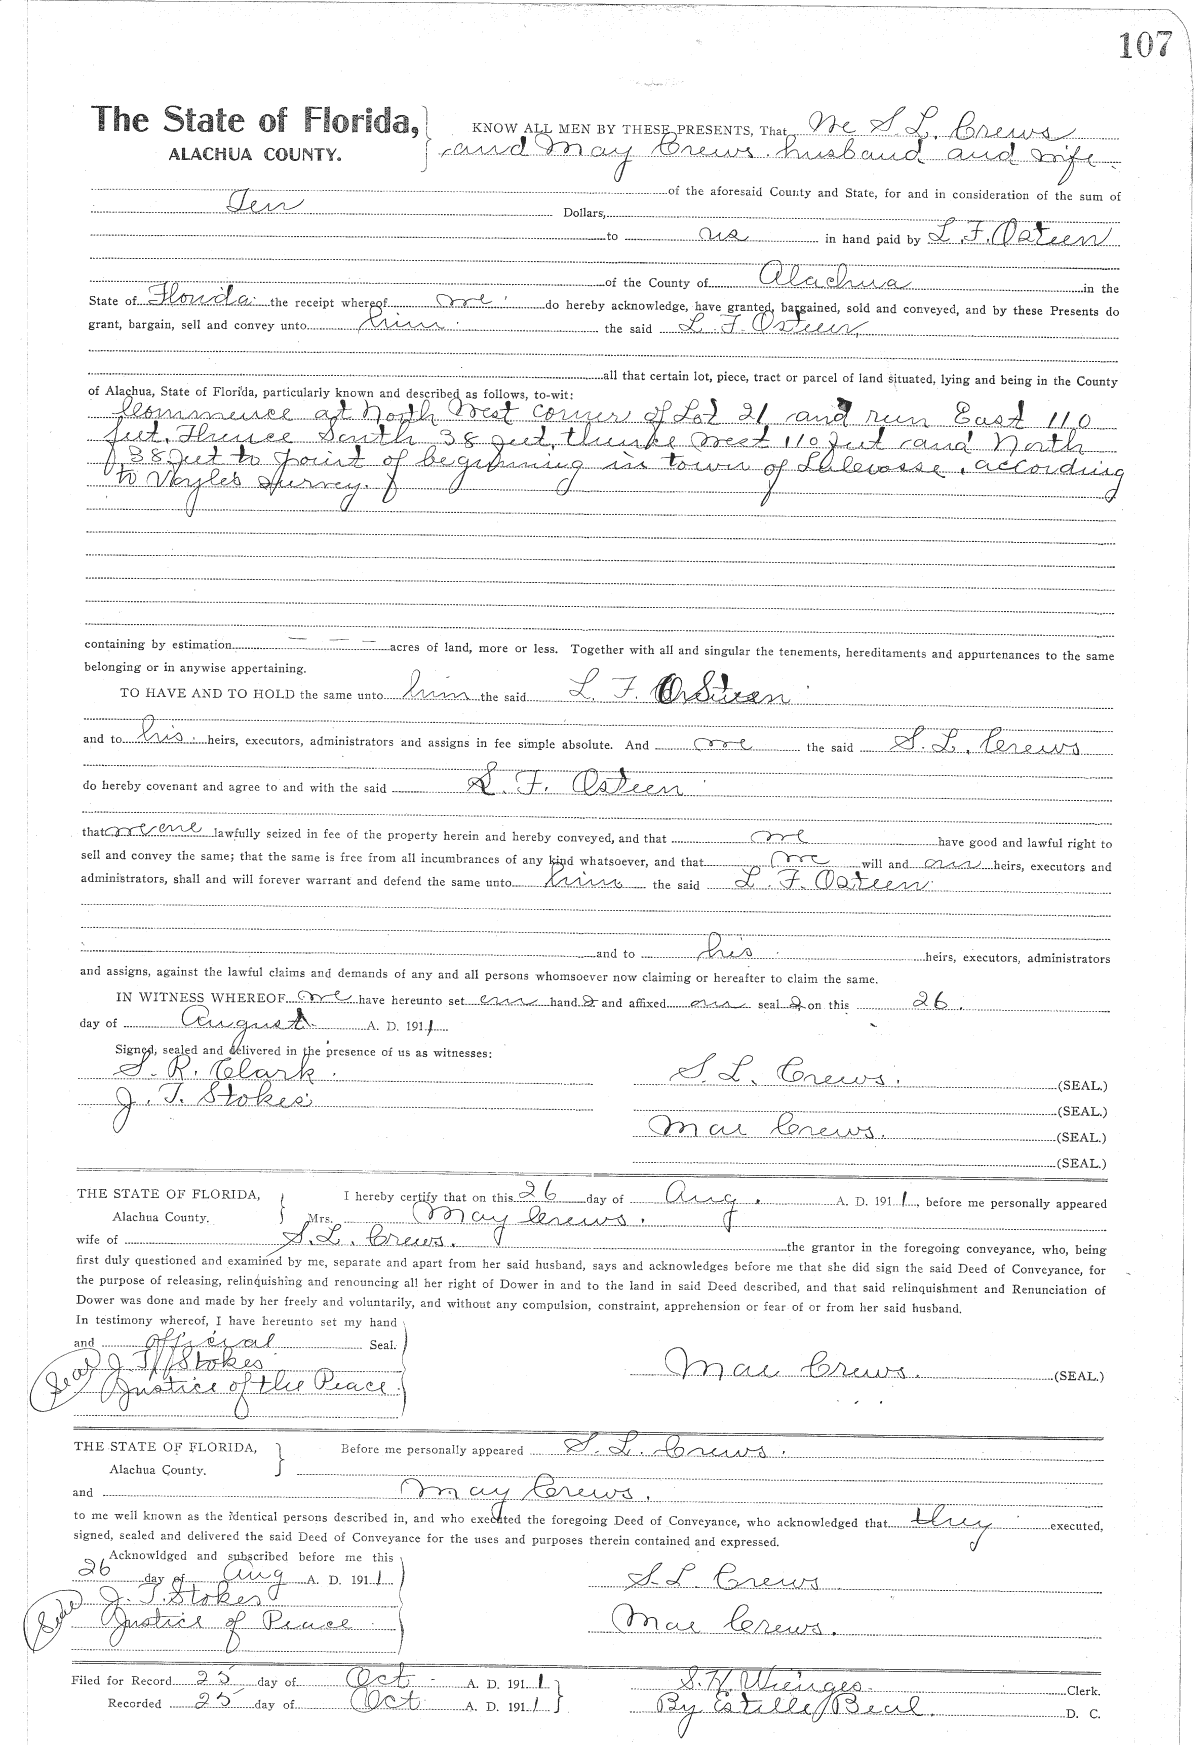 107
The State of Florida, KNOW ALL MEN BY THESE PRESENTS, That We S. L. Crews
ALACHUA COUNTY. and May Crews husband and wife.
of the aforesaid County and State, for and in consideration of the sum of
Ten Dollars,
to us in hand paid by L. F. Osteen
of the County of Alachua in the
State of Florida the receipt whereof we do hereby acknowledge, have granted, bargained, sold and conveyed, and by these Presents do
grant, bargain, sell and convey unto him the said L. F. Osteen
all that certain lot, piece, tract or parcel of land situated, lying and being in the County
of Alachua, State of Florida, particularly known and described as follows, to-wit:
Commence at North West corner of Lot 21 and run East 110
feet. Thence South 38 feet, thence West 110 feet and North
38 feet to point of beginning in town of according
to Survey.
containing by estimation — — — acres of land, more or less. Together with all and singular the tenements, hereditaments and appurtenances to the same
belonging or in anywise appertaining.
TO HAVE AND TO HOLD the same unto him the said L. F. Osteen
and to his heirs, executors, administrators and assigns in fee simple absolute. And we the said S. L. Crews
do hereby covenant and agree to and with the said L. F. Osteen
that we are lawfully seized in fee of the property herein and hereby conveyed, and that we have good and lawful right to
sell and convey the same; that the same is free from all incumbrances of any kind whatsoever, and that we will and our heirs, executors and
administrators, shall and will forever warrant and defend the same unto him the said L. F. Osteen
and to his heirs, executors, administrators
and assigns, against the lawful claims and demands of any and all persons whomsoever now claiming or hereafter to claim the same.
IN WITNESS WHEREOF we have hereunto set our hand s and affixed our seal s on this 26.
day of August A. D. 1911
Signed, sealed and delivered in the presence of us as witnesses:
S. R. Clark. S. L. Crews. (SEAL.)
J. T. Stokes (SEAL.)
Mae Crews. (SEAL.)
(SEAL.)
THE STATE OF FLORIDA, I hereby certify that on this 26 day of Aug. A. D. 1911, before me personally appeared
Alachua County. Mrs. May Crews.
wife of S. L. Crews. the grantor in the foregoing conveyance, who, being
first duly questioned and examined by me, separate and apart from her said husband, says and acknowledges before me that she did sign the said Deed of Conveyance, for
the purpose of releasing, relinquishing and renouncing all her right of Dower in and to the land in said Deed described, and that said relinquishment and Renunciation of
Dower was done and made by her freely and voluntarily, and without any compulsion, constraint, apprehension or fear of or from her said husband.
In testimony whereof, I have hereunto set my hand
and official Seal.
Seal J. T. Stokes Mae Crews. (SEAL.)
Justice of the Peace.
THE STATE OF FLORIDA, Before me personally appeared S. L. Crews.
Alachua County.
and May Crews.
to me well known as the identical persons described in, and who executed the foregoing Deed of Conveyance, who acknowledged that they executed,
signed, sealed and delivered the said Deed of Conveyance for the uses and purposes therein contained and expressed.
Acknowldged and subscribed before me this
26 day of Aug A. D. 1911 S. L. Crews
Seal J. T. Stokes
Justice of Peace Mae Crews.
Filed for Record 25 day of Oct A. D. 1911 S. H. Wienges Clerk.
Recorded 25 day of Oct A. D. 1911 By Estelle Beal. D. C.